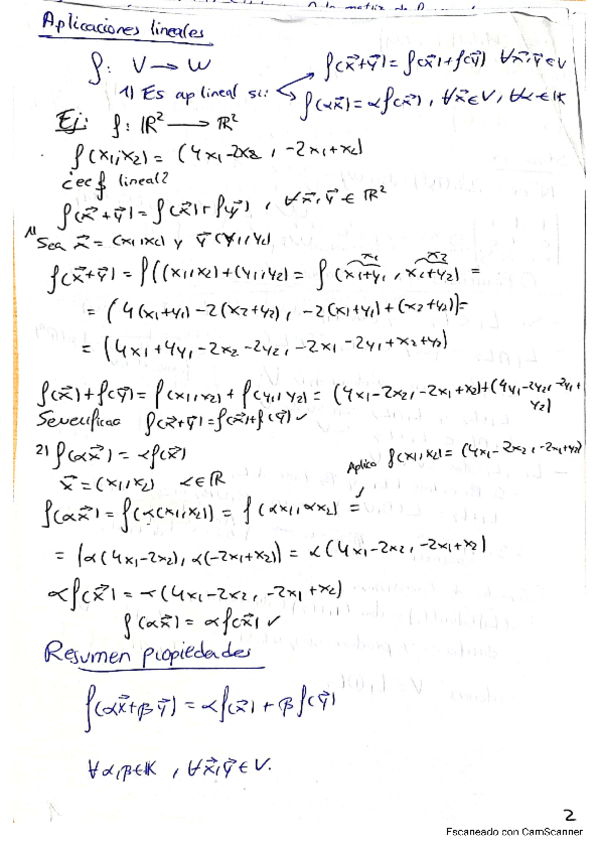 Aplicaciones lineales
f: V → W
1) Es ap lineal si:
f(x⃗+y⃗) = f(x⃗) + f(y⃗) ∀x⃗,y⃗ ∈ V
f(αx⃗) = αf(x⃗), ∀x⃗ ∈ V, ∀α ∈ IK
Ej: f: IR² → IR²
f(x₁,x₂) = (4x₁-2x₂, -2x₁+x₂)
¿es f lineal?
f(x⃗+y⃗) = f(x⃗)+f(y⃗), ∀x⃗,y⃗ ∈ IR²
1) Sea x⃗ = (x₁,x₂) y y⃗ (y₁,y₂)
f(x⃗+y⃗) = f((x₁,x₂)+(y₁,y₂) = f (x₁+y₁, x₂+y₂) =
= (4(x₁+y₁)-2(x₂+y₂), -2(x₁+y₁)+(x₂+y₂)) =
= (4x₁+4y₁-2x₂-2y₂, -2x₁-2y₁+x₂+y₂)
f(x⃗)+f(y⃗) = f(x₁,x₂) + f(y₁,y₂) = (4x₁-2x₂, -2x₁+x₂)+(4y₁-2y₂, -2y₁+
y₂)
Se verifica f(x⃗+y⃗)=f(x⃗)+f(y⃗) ✓
2) f(αx⃗) = αf(x⃗)
Aplico f(x₁,x₂) = (4x₁-2x₂, -2x₁+x₂)
x⃗ = (x₁,x₂) α∈IR
f(αx⃗) = f(α(x₁,x₂)) = f(αx₁, αx₂) =
= (α(4x₁-2x₂), α(-2x₁+x₂)) = α(4x₁-2x₂, -2x₁+x₂)
αf(x⃗) = α(4x₁-2x₂, -2x₁+x₂)
f(αx⃗) = αf(x⃗) ✓
Resumen propiedades
f(αx⃗+βy⃗) = αf(x⃗) + βf(y⃗)
∀α,β∈IK, ∀x⃗,y⃗ ∈ V.
2
Escaneado con CamScanner